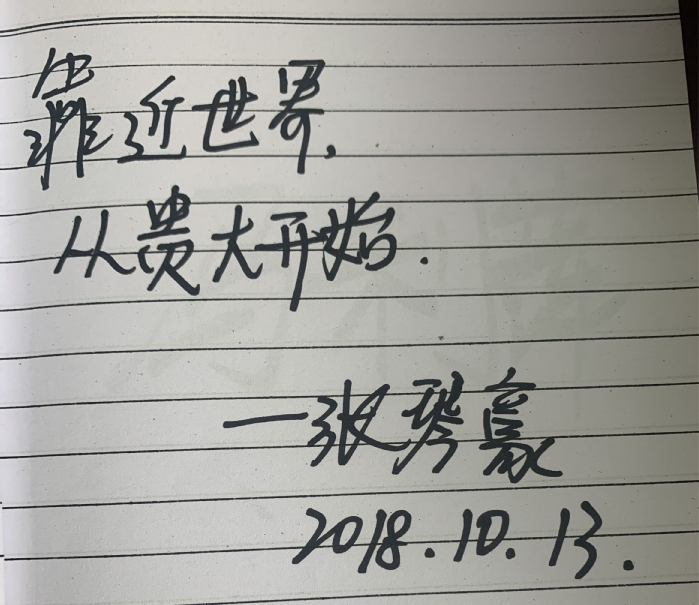 靠近世界,
从贵大开始.
—张琴豪
2018.10.13.